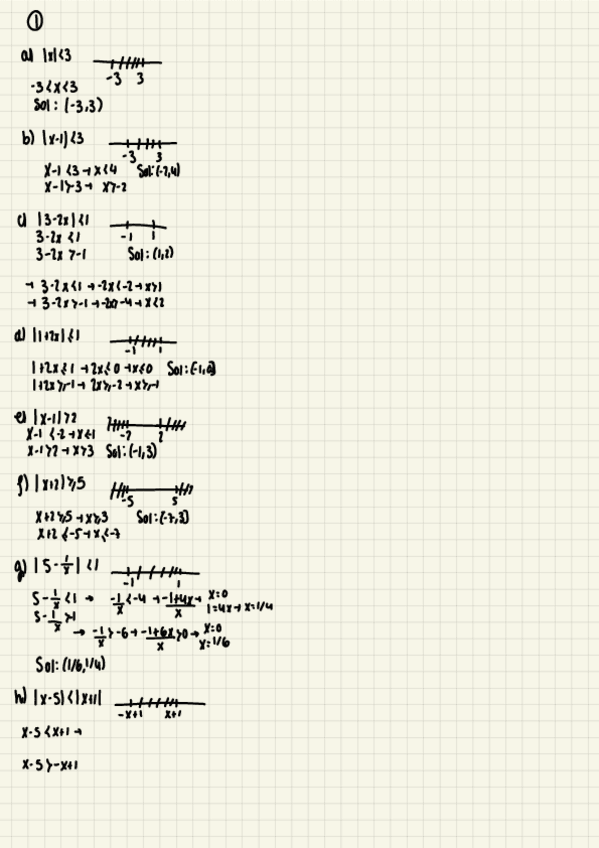 ①
a) |x|<3
-3 3
-3<x<3
Sol: (-3,3)
b) |x-1|<3
-3 3
x-1<3→x<4 Sol:(-2,4)
x-1>-3→ x>-2
c) |3-2x|<1
3-2x<1 -1 1
3-2x>-1 Sol:(1,2)
→ 3-2x<1→-2x<-2→x>1
→ 3-2x>-1→-2x>-4→x<2
d) |1+2x|≤1
-1 1
1+2x≤1 →2x≤0→x≤0 Sol:[-1,0]
1+2x≥-1→ 2x≥-2→x≥-1
e) |x-1|>2
x-1<-2→x<-1 -2 2
x-1>2→x>3 Sol:(-1,3)
f) |x+2|≥5
-5 5
x+2≥5→x≥3 Sol:(-7,3)
x+2≤-5→x≤-7
g) |5-1/x|<1
-1 1
5-1/x<1 → -1/x<-4 → -1+4x/x → x=0
1=4x→x=1/4
5-1/x>1
→ -1/x>-6→ -1+6x/x>0→ x=0
x=1/6
Sol: (1/6,1/4)
h) |x-5|<|x+1|
-x+1 x+1
x-5<x+1→
x-5>-x+1